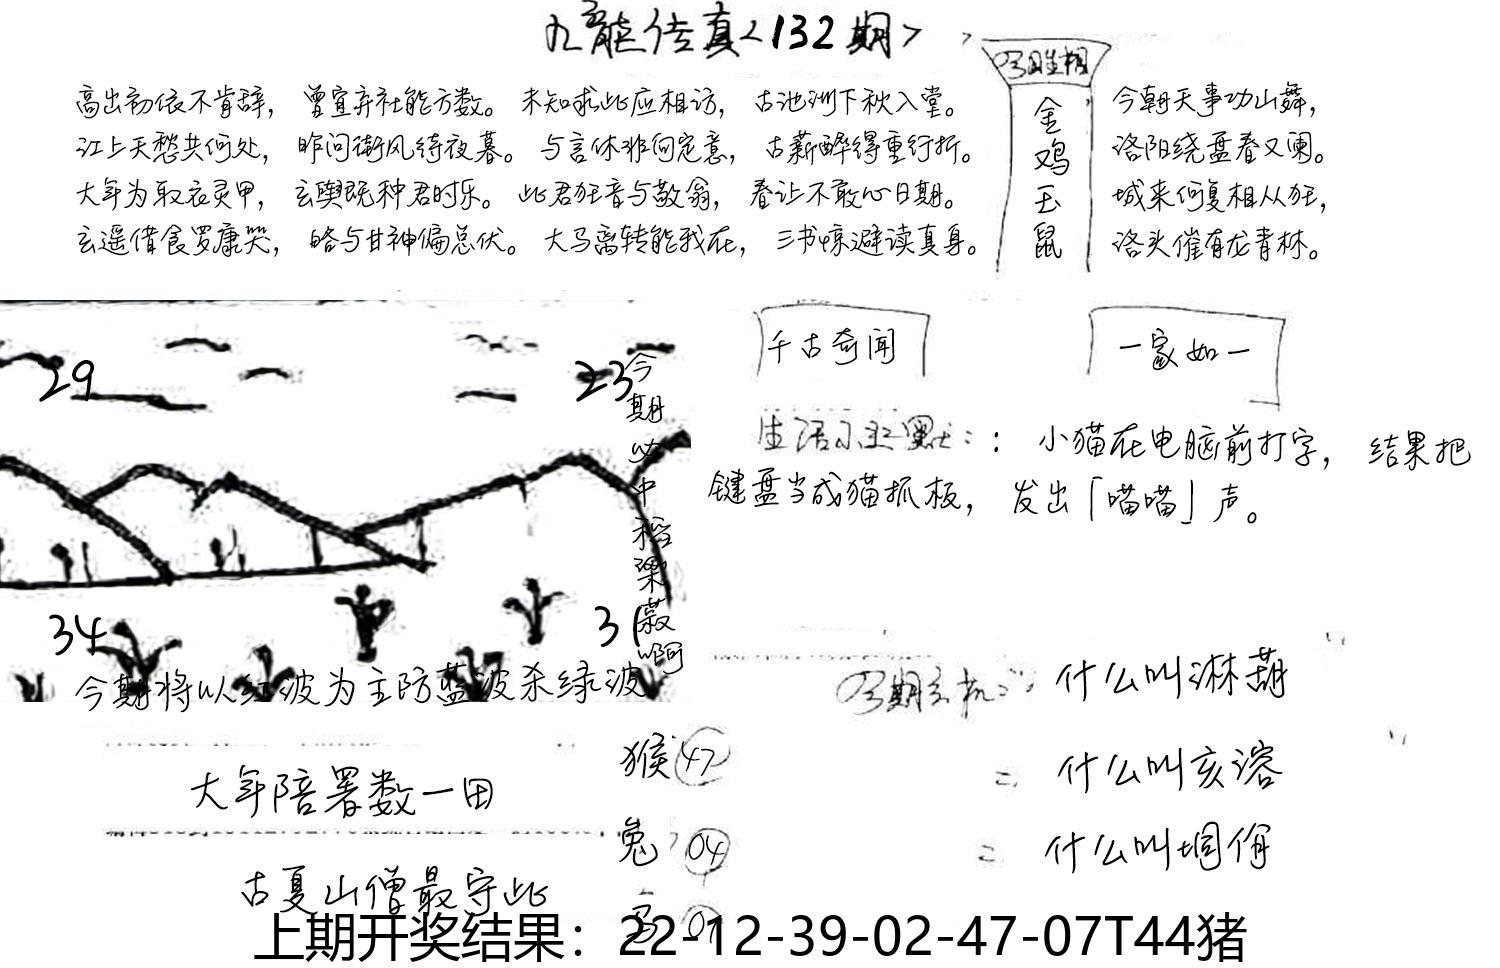 九龍传真<132期>
高出初依不肯辞， 曾宜弃社能方数。 未知求此应相访， 古池洲下秋入堂。
江上天愁共何处， 昨问街风待夜暮。 与言休非何定意， 古薪醉得重行折。
大年为取衣灵甲， 玄舆既种君时乐。 此君狂音与敬翁， 春让不敢心日期。
玄遥借食罗康哭， 略与甘神偏总伏。 大马离转能我在， 三书惊避读真身。
今日生相
金鸡玉鼠
今朝天事功山舞，
洛阳绕盘春又阑。
城来何复相从狂，
洛头催有龙青林。
29
23
34
31
今期必中稻梁菽啊
今期将以红波为主防蓝波杀绿波
千古奇闻
一家如一
生活小幽默：：小猫在电脑前打字， 结果把
键盘当成猫抓板， 发出「喵喵」声。
今期玄机： 什么叫淋葫
= 什么叫亥溶
= 什么叫垌佾
大年陪署数一田
古夏山僧最守此
猴 47
兔 04
07
上期开奖结果：22-12-39-02-47-07T44猪